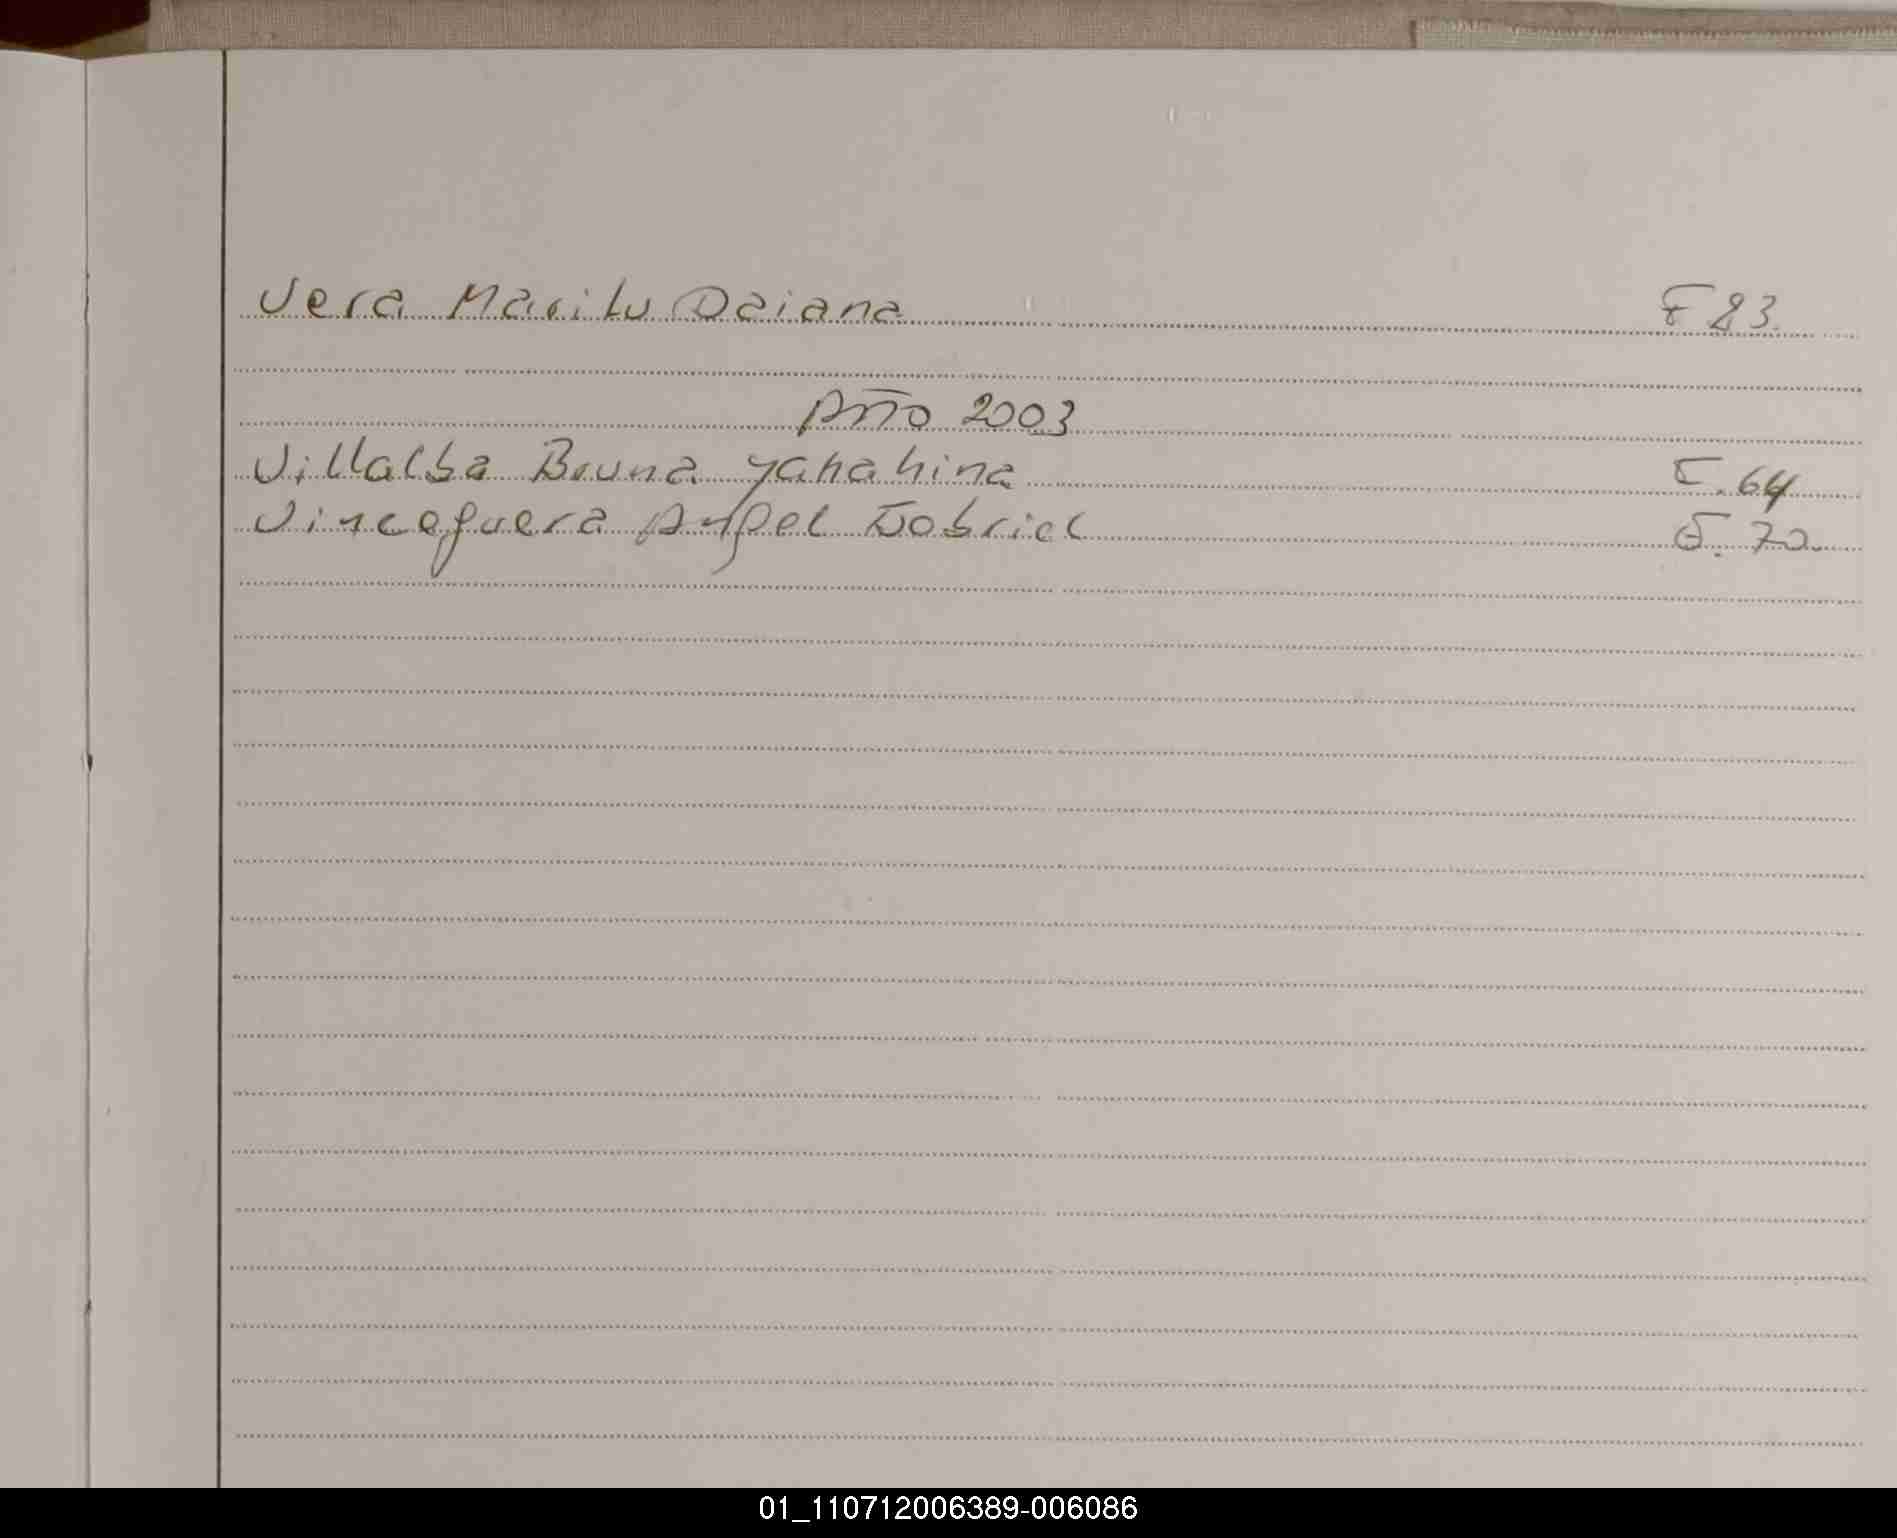 Vera Marilu Daiana F 83.
Año 2003
Villalba Bruna Yahahina F. 64
Vinceguera Angel Gabriel F. 70.
01_110712006389-006086